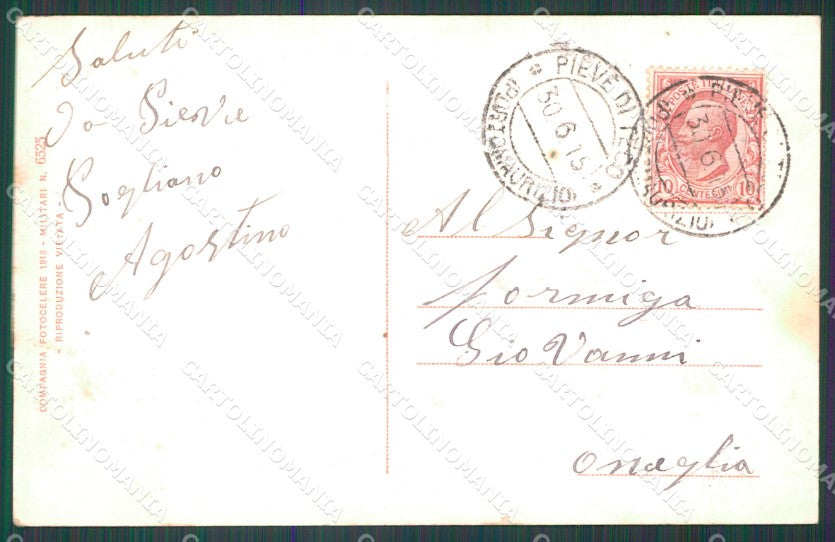 Saluti
da Pieve
Sogliano
Agostino
COMPAGNIA FOTOCELERE 1913 - MILITARI N. 6525
- RIPRODUZIONE VIETATA -
PIEVE DI TECO
(PORTO MAURIZIO)
30.6.15
POSTE ITALIANE
CENTESIMI 10
PIEVE
30.6
Al Signor
formiga
Giovanni
oneglia
CARTOLINOMANIA